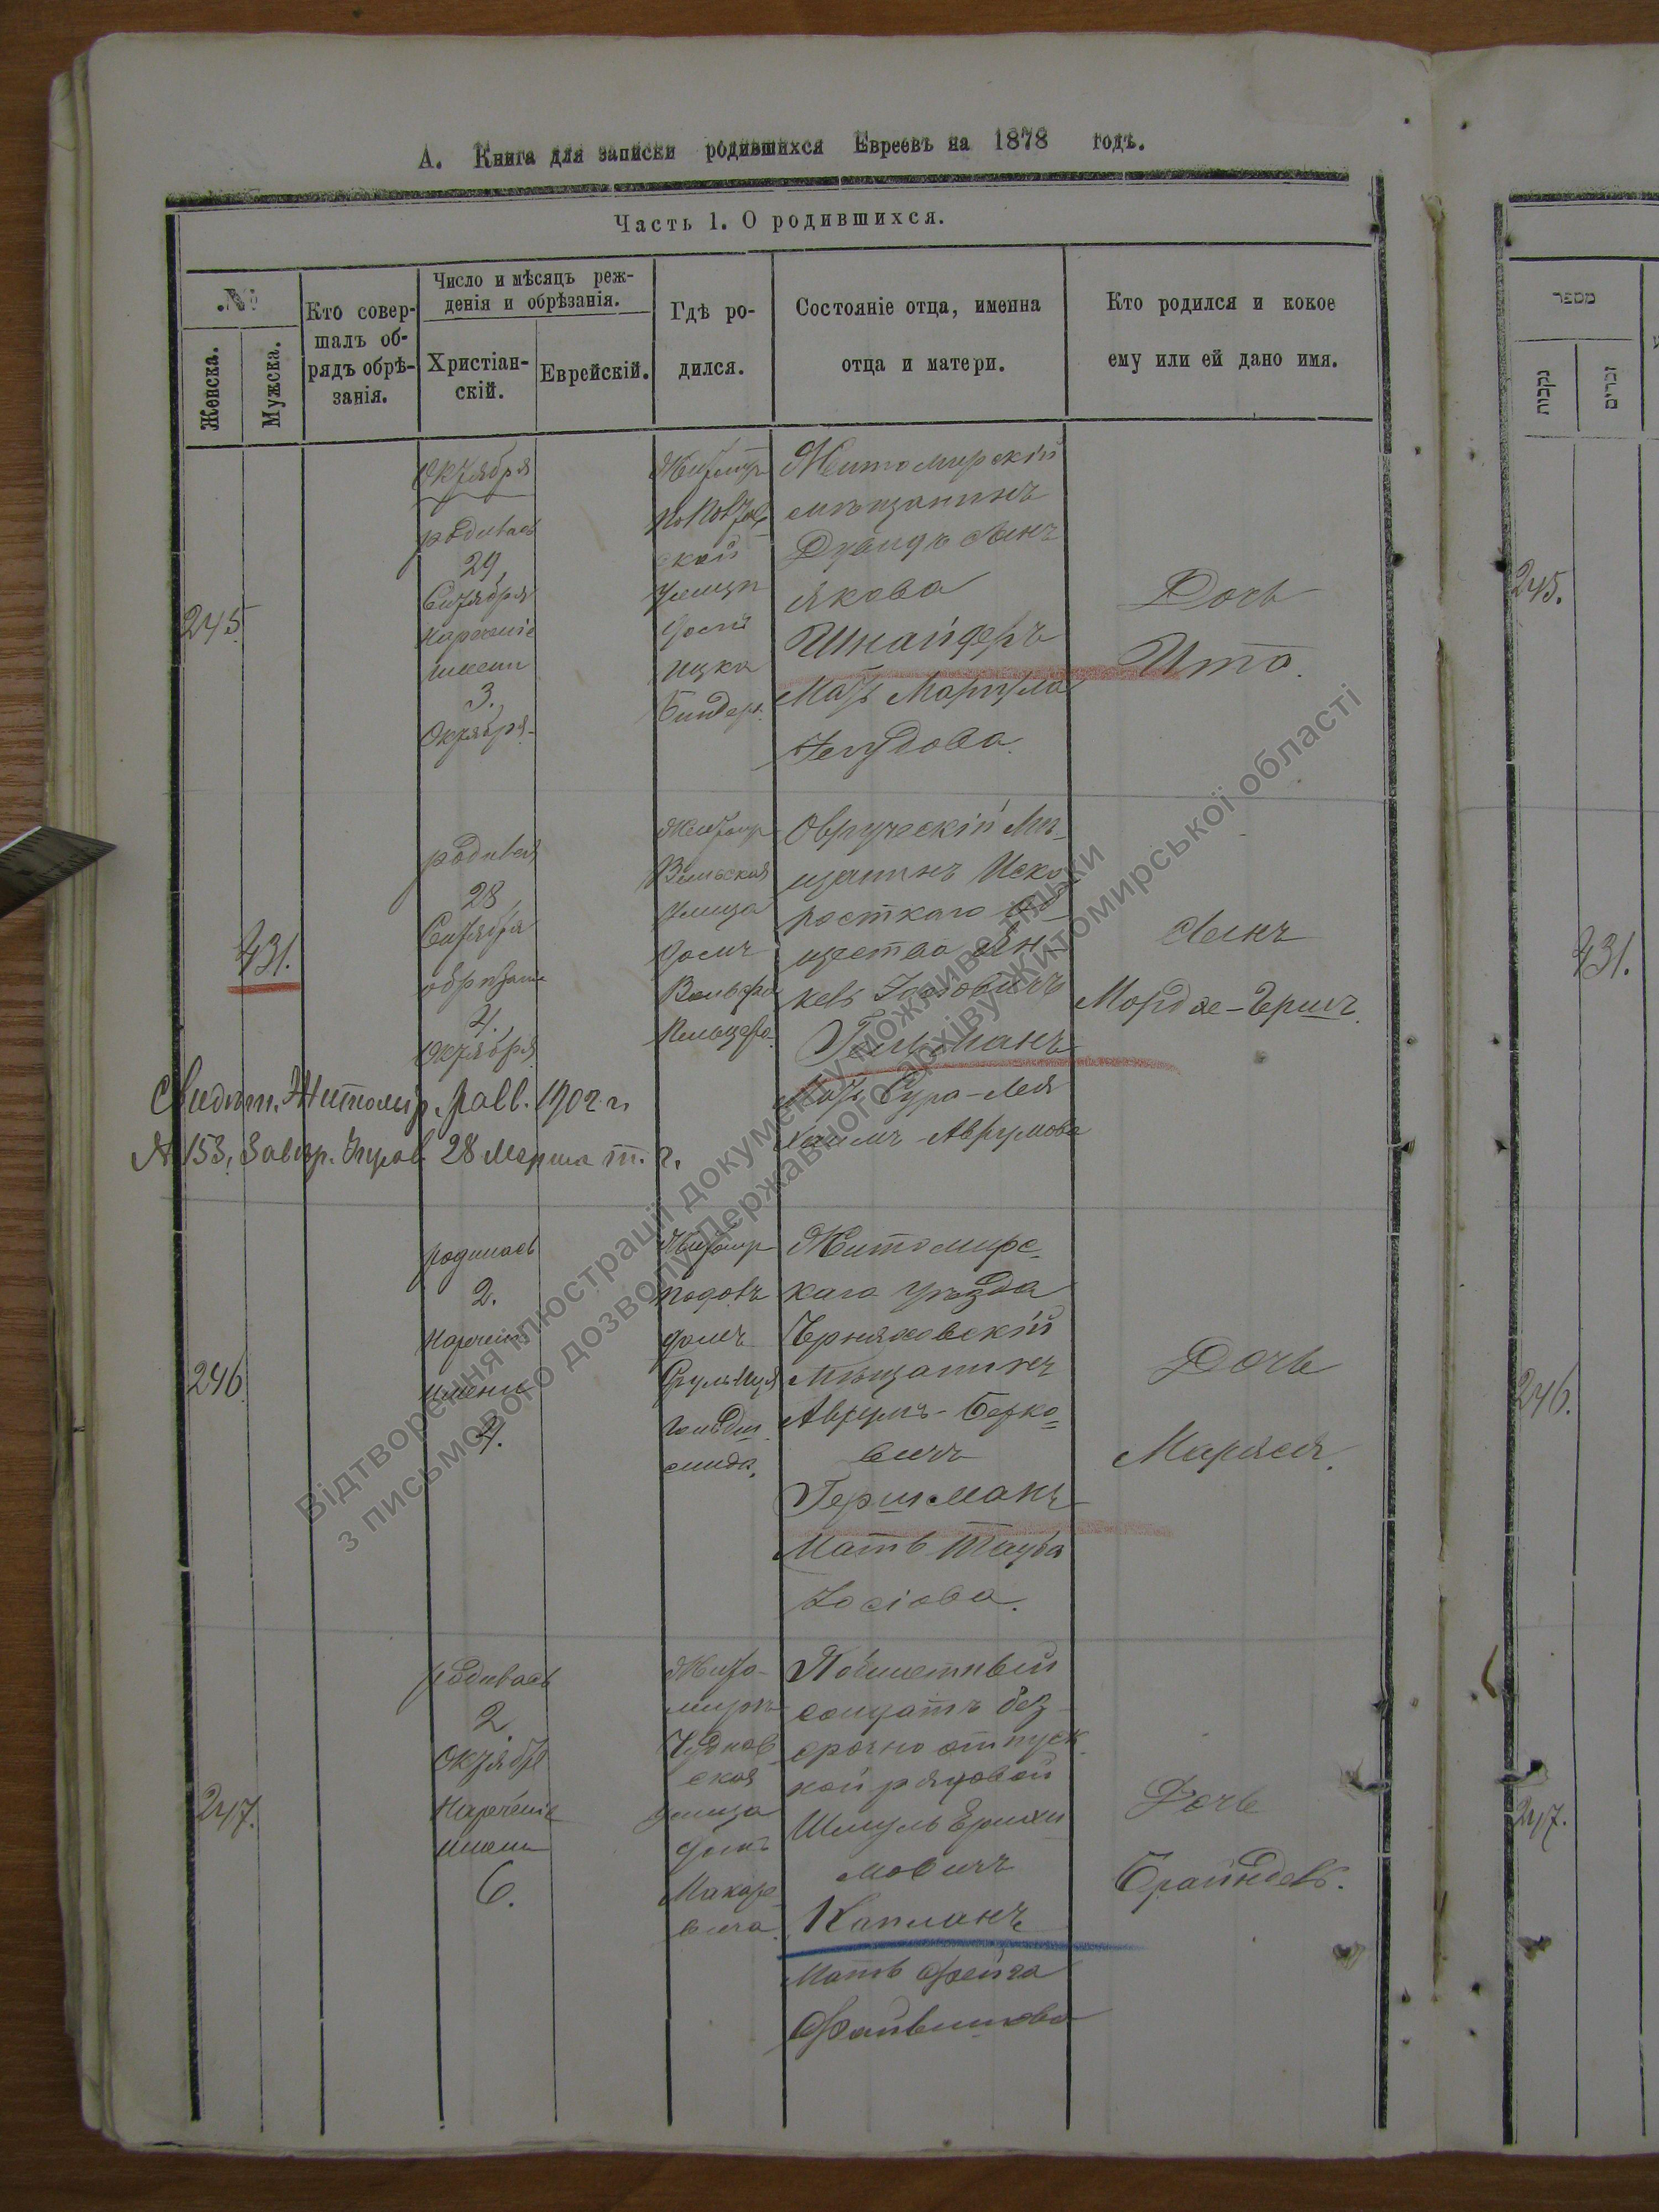 А. Книга для записки родившихся Евреевъ на 1878 годъ.
Часть 1. О родившихся.
№
Женска.
Мужска.
Кто совер-
шалъ об-
рядъ обрѣ-
занія.
Число и мѣсяцъ реж-
денія и обрѣзанія.
Христіан-
скій.
Еврейскій.
Гдѣ ро-
дился.
Состояніе отца, именна
отца и матери.
Кто родился и кокое
ему или ей дано имя.
245
Октября
родилась
29
Сентября
нареченіе
имени
3.
Октября
Житомир
ской
улицы
домъ
Ицка
Биндер.
Житомирскій
мѣщанинъ
сынъ
Якова
Шнайдеръ
Мать
Дочь
Ита.
431.
родился
28
Сентября
обрѣзание
4.
Октября
Житомир
Вильская
улица
домъ
Вольфа
Овручскій Мѣ-
щанинъ Иско-
ростского Об-
щества Ян-
кель
Гительманъ
Мать Сура-Лея
Хаимъ-Аврумова
Сынъ
Мордхе-Герш.
Свидѣт. Житомір. равв. 1902 г.
№ 153, Завѣр. Управ. 28 Марта т. г.
246
родилась
2.
Наречен.
имени
4.
Житомир
домъ
Житомирс-
каго уѣзда
Черняховскій
Мѣщанинъ
Аврумъ-Берко-
вичъ
Гершманъ
Мать Тауба
Іосіова.
Дочь
Маріяся.
247.
родилась
2
Октября
Нареченіе
имени
6.
Жито-
миръ
Чуднов
ская
улица
домъ
Макаре
вича.
солдатъ без-
срочно отпуск
ной рядовой
Шмуль
мовичъ
Капланъ
Мать Фейга
Файвишова
Дочь
Брайндель.
מספר
נקבות
זכרים
245.
431.
246.
247.
Відтворення ілюстрації документу можливе тільки
з письмового дозволу Державного архіву Житомирської області